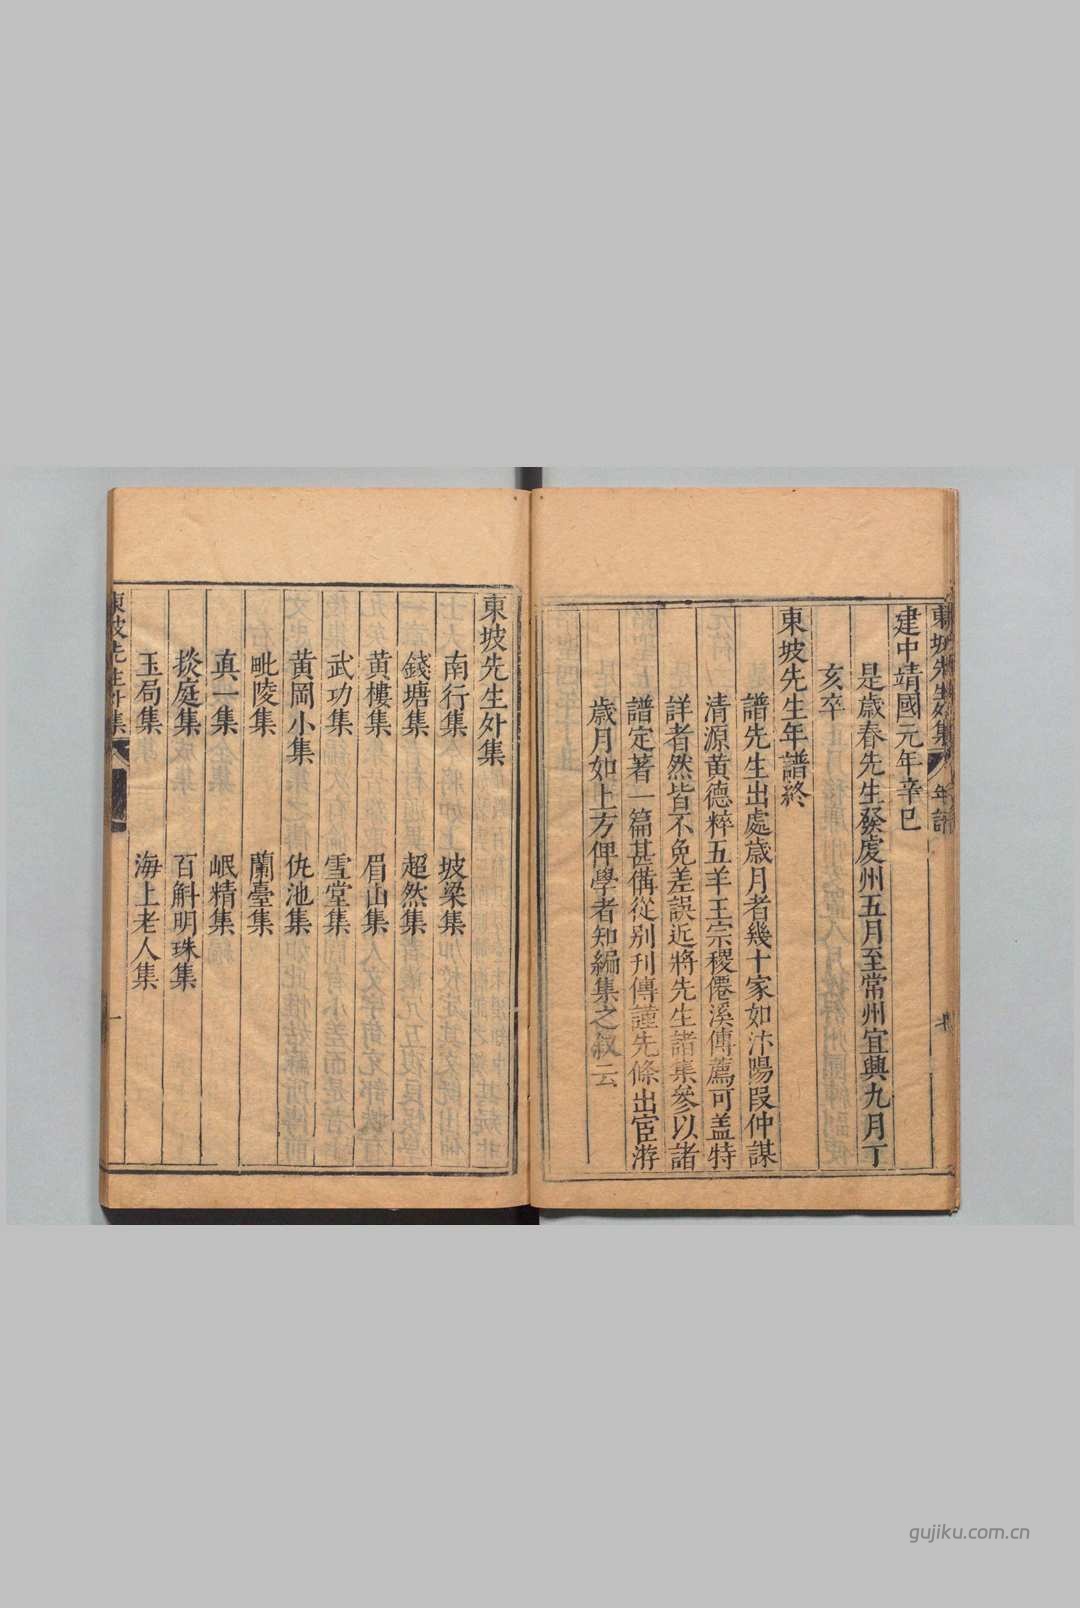 東坡先生外集
年譜
建中靖國元年辛巳
是歲春先生發虔州五月至常州宜興九月丁
亥卒
東坡先生年譜終
譜先生出處歲月者幾十家如汴陽段仲謀
清源黃德粹五羊王宗稷僊溪傅薦可盖特
詳者然皆不免差誤近將先生諸集參以諸
譜定著一篇甚備從别刊傳謹先條出宦游
歲月如上方俾學者知編集之叙云
東坡先生外集
南行集 坡梁集
錢塘集 超然集
黄樓集 眉山集
武功集 雪堂集
黄岡小集 仇池集
毗陵集 蘭臺集
真一集 岷精集
掞庭集 百斛明珠集
玉局集 海上老人集
東坡先生外集
一
gujiku.com.cn